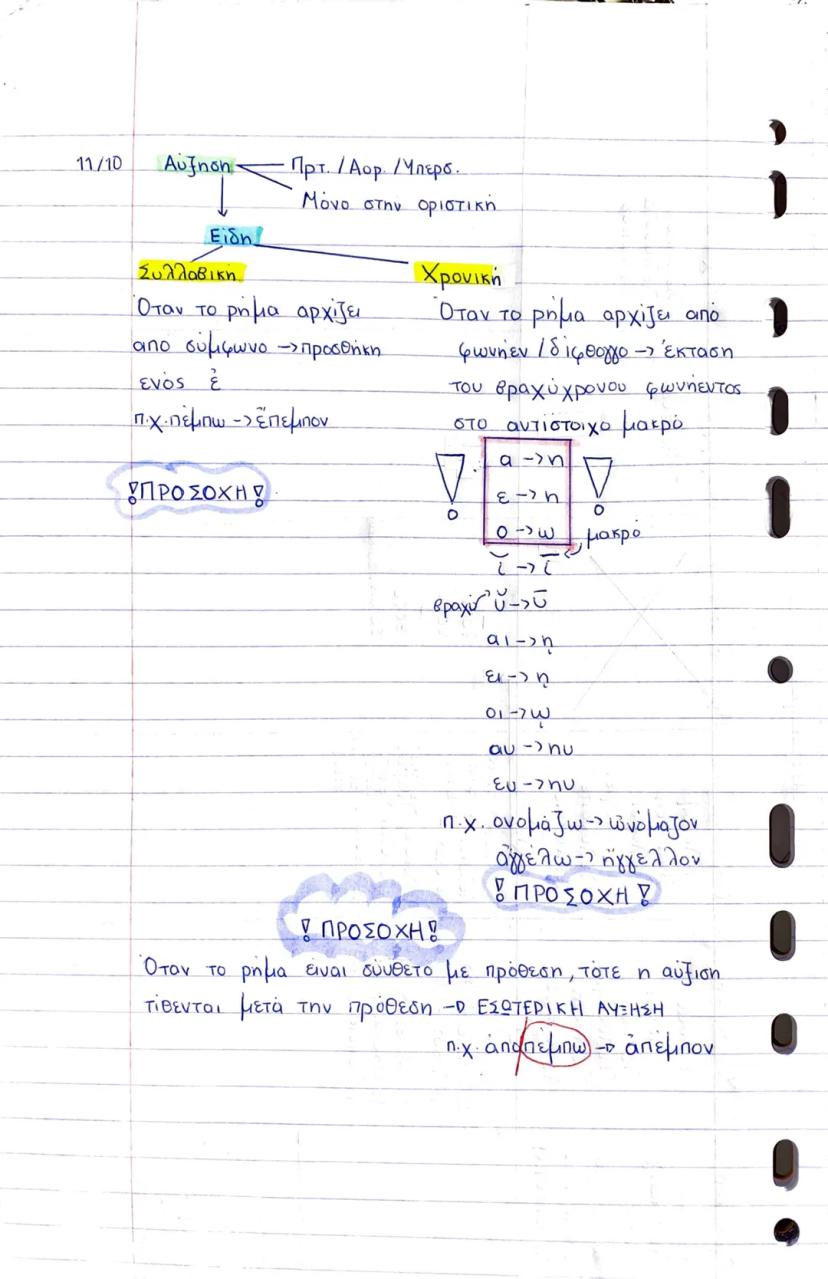 11/10 Αύξηση Πρτ. / Αορ. / Υπερσ.
Μόνο στην οριστική
Είδη
Συλλαβική
Όταν το ρήμα αρχίζει
από σύμφωνο -> προσθήκη
ενός ἐ
π.χ. πέμπω -> ἔπεμπον
!ΠΡΟΣΟΧΗ!
Χρονική
Όταν το ρήμα αρχίζει από
φωνήεν / δίφθογγο -> έκταση
του βραχύχρονου φωνήεντος
στο αντίστοιχο μακρό
! α -> η !
ε -> η
ο -> ω
μακρό
ῐ -> ῑ
βραχύ ῠ -> ῡ
αι -> ῃ
ει -> ῃ
οι -> ῳ
αυ -> ηυ
ευ -> ηυ
π.χ. ονομάζω -> ὠνόμαζον
ἀγγέλω -> ἤγγελλον
! ΠΡΟΣΟΧΗ !
! ΠΡΟΣΟΧΗ !
Όταν το ρήμα είναι σύνθετο με πρόθεση, τότε η αύξιση
τίθενται μετά την πρόθεση -> ΕΣΩΤΕΡΙΚΗ ΑΥΞΗΣΗ
π.χ. ἀποπέμπω -> ἀπέμπον